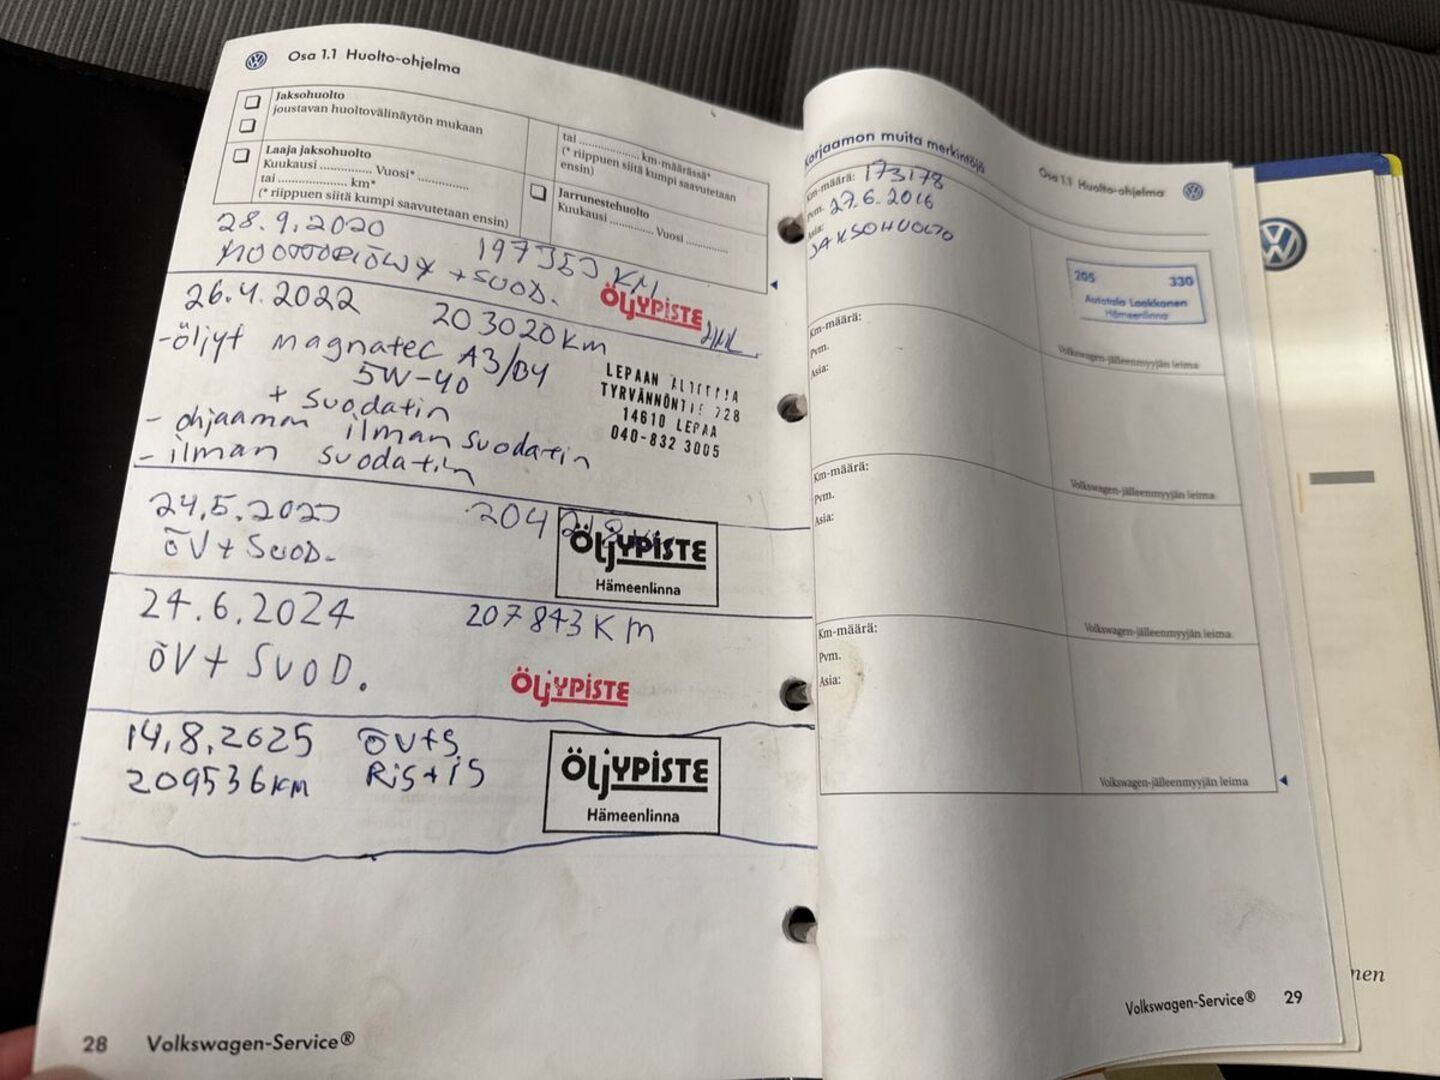 Osa 1.1 Huolto-ohjelma
Jaksohuolto
joustavan huoltovälinäytön mukaan
Laaja jaksohuolto
Kuukausi ............... Vuosi* ...............
tai .................... km*
(* riippuen siitä kumpi saavutetaan ensin)
tai .................. km-määrässä*
(* riippuen siitä kumpi saavutetaan
ensin)
Jarrunestehuolto
Kuukausi ........... Vuosi ..............
28.9.2020
KM
+ SUOD.
ÖLjYPiSTE
26.4.2022 203020 Km
-öljyt magnatec A3/B4
5W-40
+ Suodatin
- ohjaamon ilman suodatin
- ilman suodatin
LEPAAN
14610 LEPAA
040-832 3005
24.5.2023
ÖV + SUOD.
ÖLjYPiSTE
Hämeenlinna
24.6.2024 207843 KM
ÖV + SUOD.
ÖLjYPiSTE
14.8.2025 ÖV+S
209536 KM RiS + iS
ÖLjYPiSTE
Hämeenlinna
28 Volkswagen-Service®
Korjaamon muita merkintöjä
Osa 1.1 Huolto-ohjelma
Km-määrä: 173178
Pvm. 27.6.2016
Asia:
JAKSOHUOLTO
205 330
Autotalo Laakkonen
Hämeenlinna
Volkswagen-jälleenmyyjän leima
Km-määrä:
Pvm.
Asia:
Volkswagen-jälleenmyyjän leima
Km-määrä:
Pvm.
Asia:
Volkswagen-jälleenmyyjän leima
Km-määrä:
Pvm.
Asia:
Volkswagen-jälleenmyyjän leima
Volkswagen-Service® 29
nen